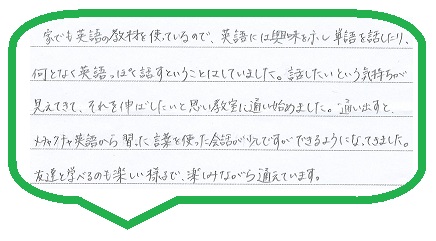 家でも英語の教材を使っているので、英語には興味を示し単語を話したり、
何となく英語っぽく話すということはしていました。話したいという気持ちが
見えてきて、それを伸ばしたいと思い教室に通い始めました。通い出すと、
メチャクチャ英語から習った言葉を使った会話が少しですができるようになってきました。
友達と学べるのも楽しい様子で、楽しみながら通えています。